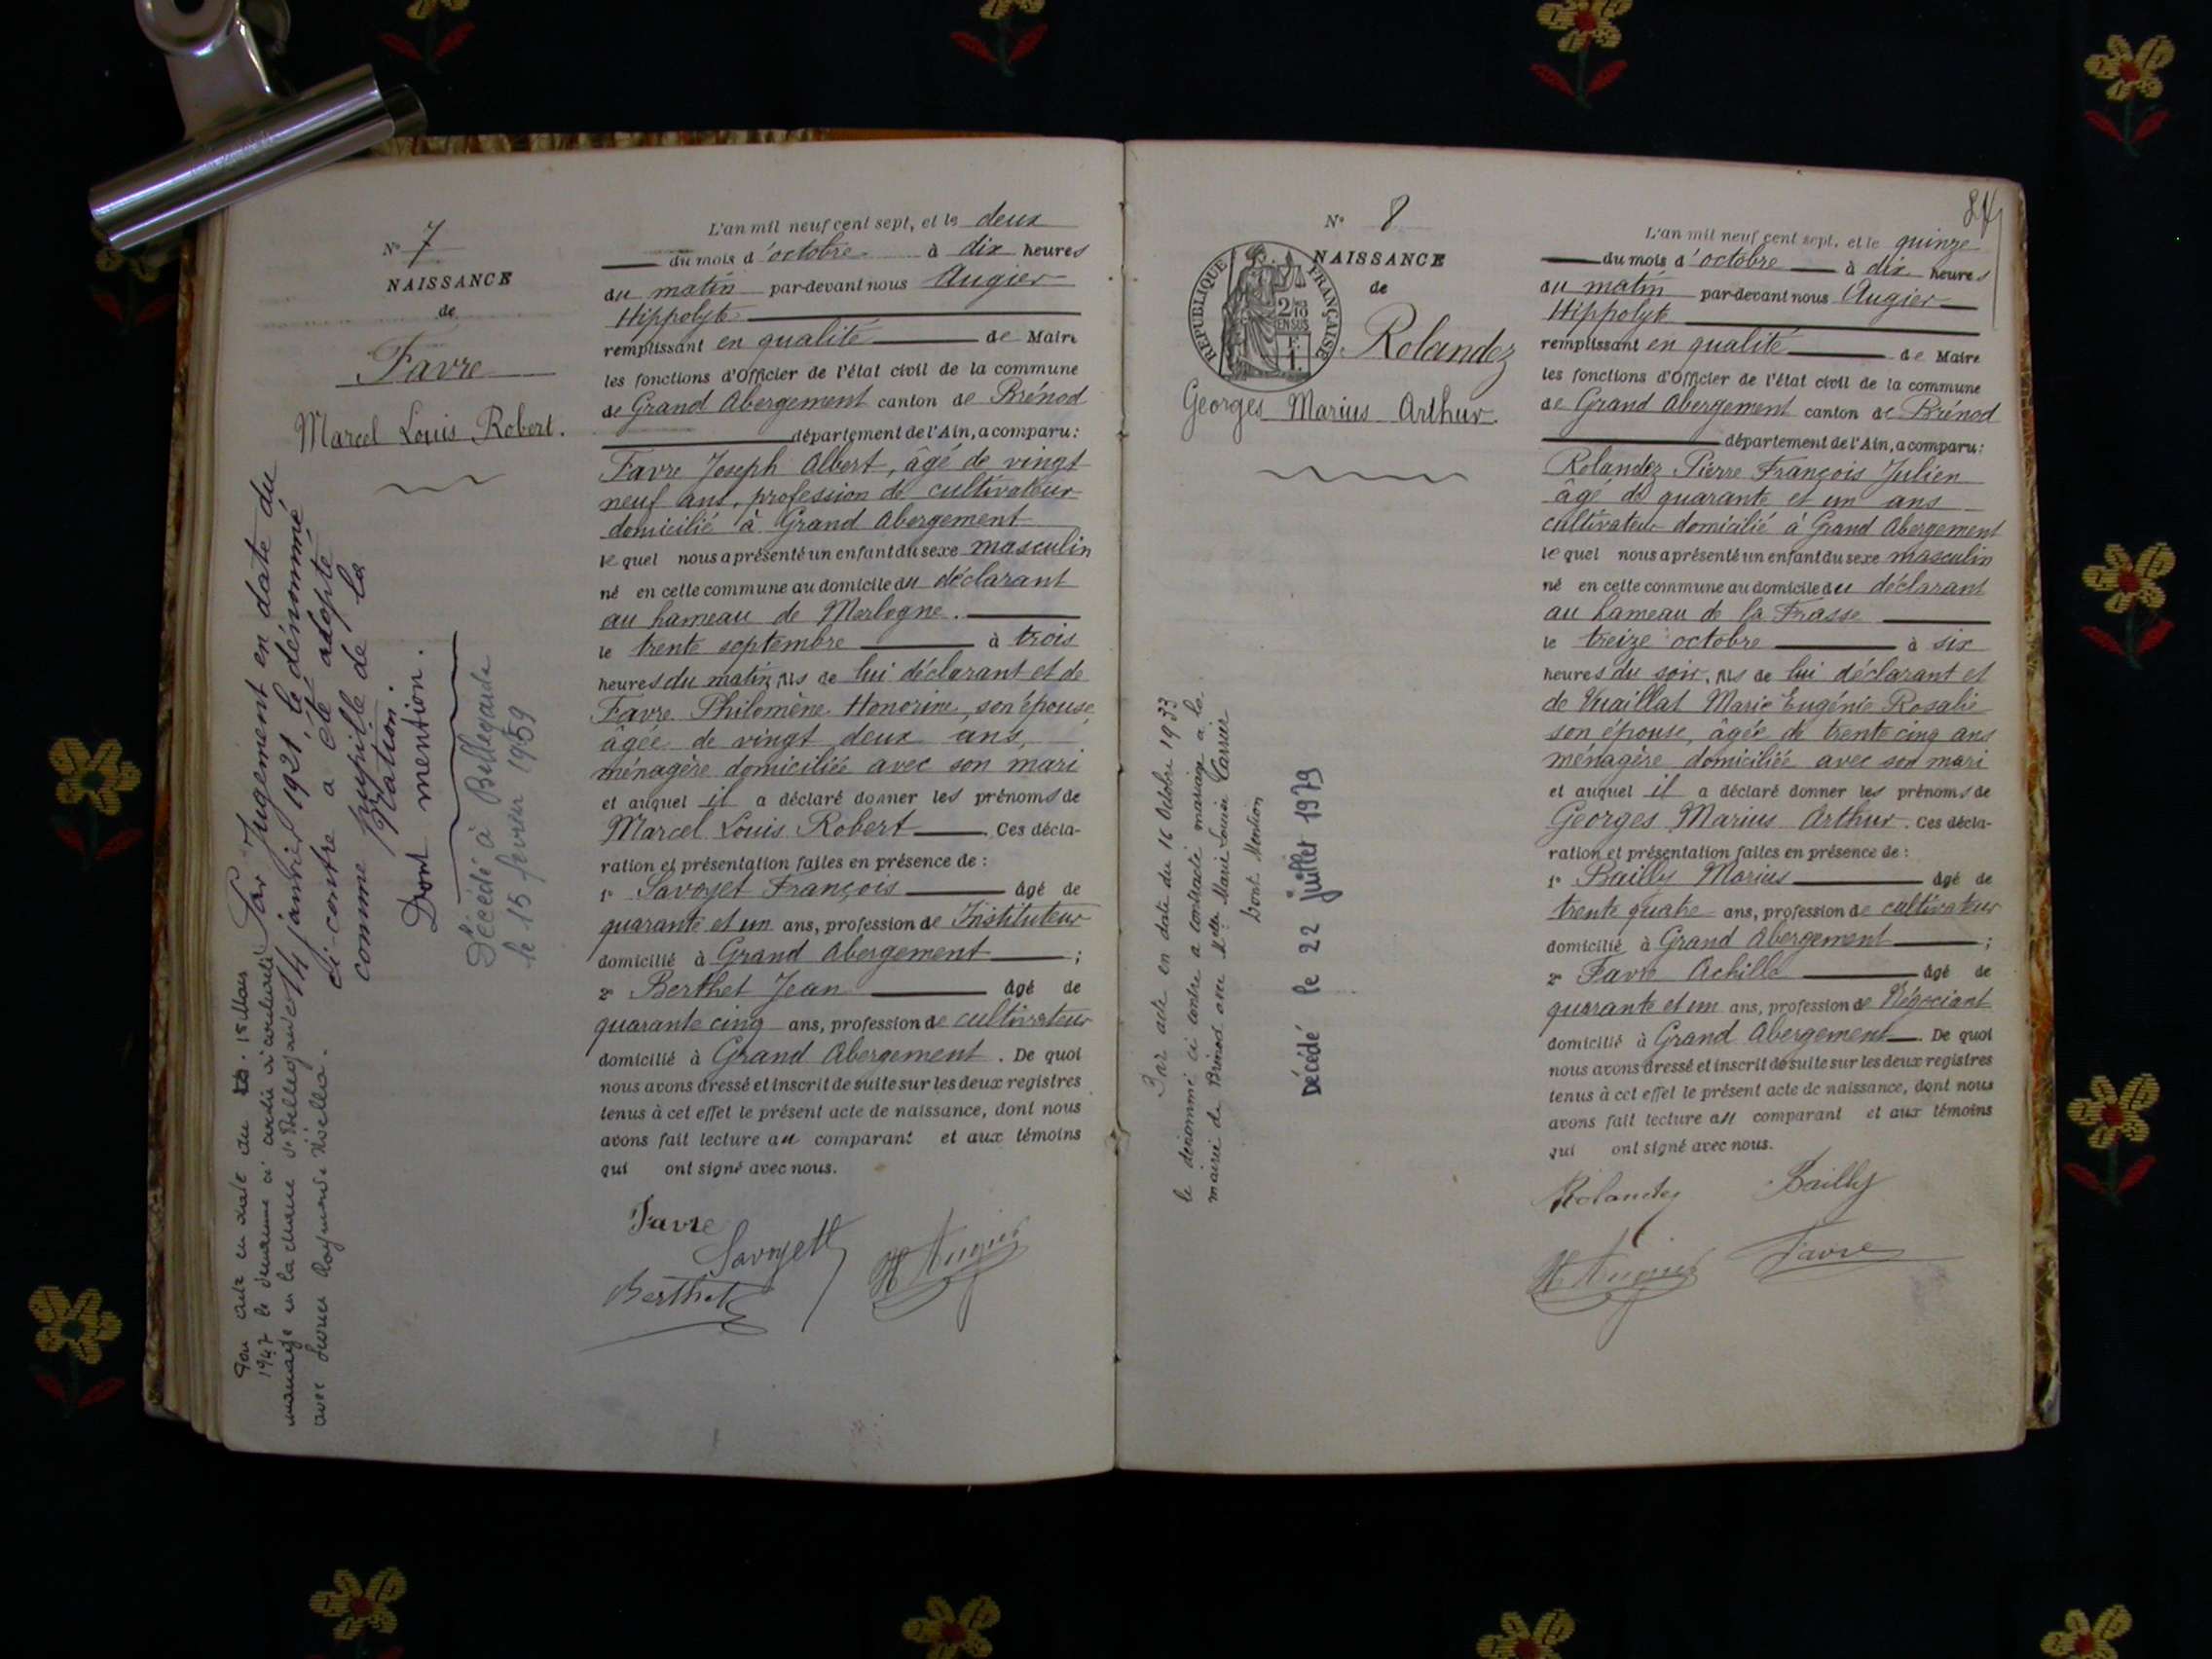 N° 7
NAISSANCE
de
Favre
Marcel Louis Robert.
Par Jugement en date du
14 janvier 1921, le dénommé
ci-contre a été adopté
comme pupille de la
Nation.
Dont mention.
Décédé à Bellegarde
le 15 février 1959
Par acte en date du 15 Mars
1947 le dénommé ci contre a contracté
mariage en la mairie de Bellegarde
avec
L'an mil neuf cent sept, et le deux
du mois d'octobre à dix heures
du matin par-devant nous Augier
Hippolyte
remplissant en qualité de Maire
les fonctions d'Officier de l'état civil de la commune
de Grand Abergement canton de Brénod
département de l'Ain, a comparu:
Favre Joseph Albert, âgé de vingt
neuf ans, profession de cultivateur
domicilié à Grand Abergement
lequel nous a présenté un enfant du sexe masculin
né en cette commune au domicile du déclarant
au hameau de Merlogne.
le trente septembre à trois
heures du matin, fils de lui déclarant et de
Favre Philomène Honorine, son épouse,
âgée de vingt deux ans,
ménagère domiciliée avec son mari
et auquel il a déclaré donner les prénoms de
Marcel Louis Robert. Ces décla-
ration et présentation faites en présence de:
1° Savoyet François âgé de
quarante et un ans, profession de Instituteur
domicilié à Grand Abergement;
2° Berthet Jean âgé de
quarante cinq ans, profession de cultivateur
domicilié à Grand Abergement. De quoi
nous avons dressé et inscrit de suite sur les deux registres
tenus à cet effet le présent acte de naissance, dont nous
avons fait lecture au comparant et aux témoins
qui ont signé avec nous.
Favre
Savoyet
Berthet
H Augier
84
N° 8
NAISSANCE
de
REPUBLIQUE FRANÇAISE
2/10
EN SUS
F.
1.
Rolandez
Georges Marius Arthur.
Par acte en date du 16 Octobre 1933
le dénommé ci contre a contracté mariage à la
mairie de Brénod avec Melle Marie Louise Carrier
Dont Mention
Décédé le 22 juillet 1979
L'an mil neuf cent sept, et le quinze
du mois d'octobre à dix heures
du matin par-devant nous Augier
Hippolyte
remplissant en qualité de Maire
les fonctions d'Officier de l'état civil de la commune
de Grand Abergement canton de Brénod
département de l'Ain, a comparu:
Rolandez Pierre François Julien
âgé de quarante et un ans
cultivateur domicilié à Grand Abergement
lequel nous a présenté un enfant du sexe masculin
né en cette commune au domicile du déclarant
au hameau de la Frasse
le treize octobre à six
heures du soir, fils de lui déclarant et
de Vuaillat Marie Eugénie Rosalie
son épouse, âgée de trente cinq ans
ménagère domiciliée avec son mari
et auquel il a déclaré donner les prénoms de
Georges Marius Arthur. Ces décla-
ration et présentation faites en présence de:
1° Bailly Marius âgé de
trente quatre ans, profession de cultivateur
domicilié à Grand Abergement;
2° Favre Achille âgé de
quarante et un ans, profession de Négociant
domicilié à Grand Abergement. De quoi
nous avons dressé et inscrit de suite sur les deux registres
tenus à cet effet le présent acte de naissance, dont nous
avons fait lecture au comparant et aux témoins
qui ont signé avec nous.
Rolandez
Bailly
H Augier
Favre